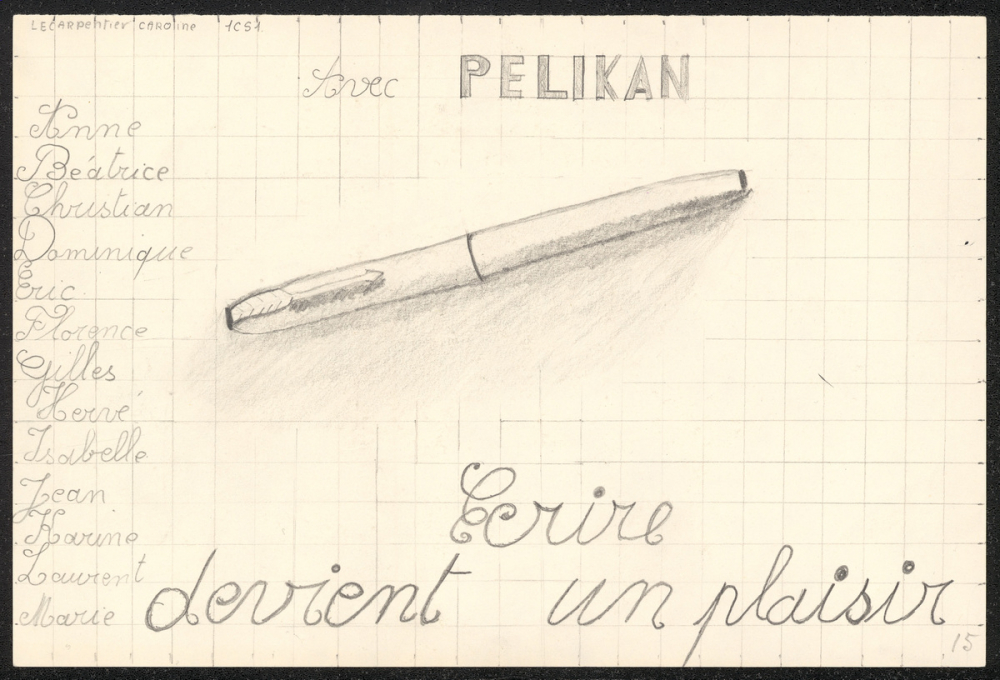 LECARPENTIER CAROLINE 1CS1
Avec PELIKAN
Anne
Béatrice
Christian
Dominique
Éric
Florence
Gilles
Hervé
Isabelle
Jean
Karine
Laurent
Marie
Ecrire
devient un plaisir
15